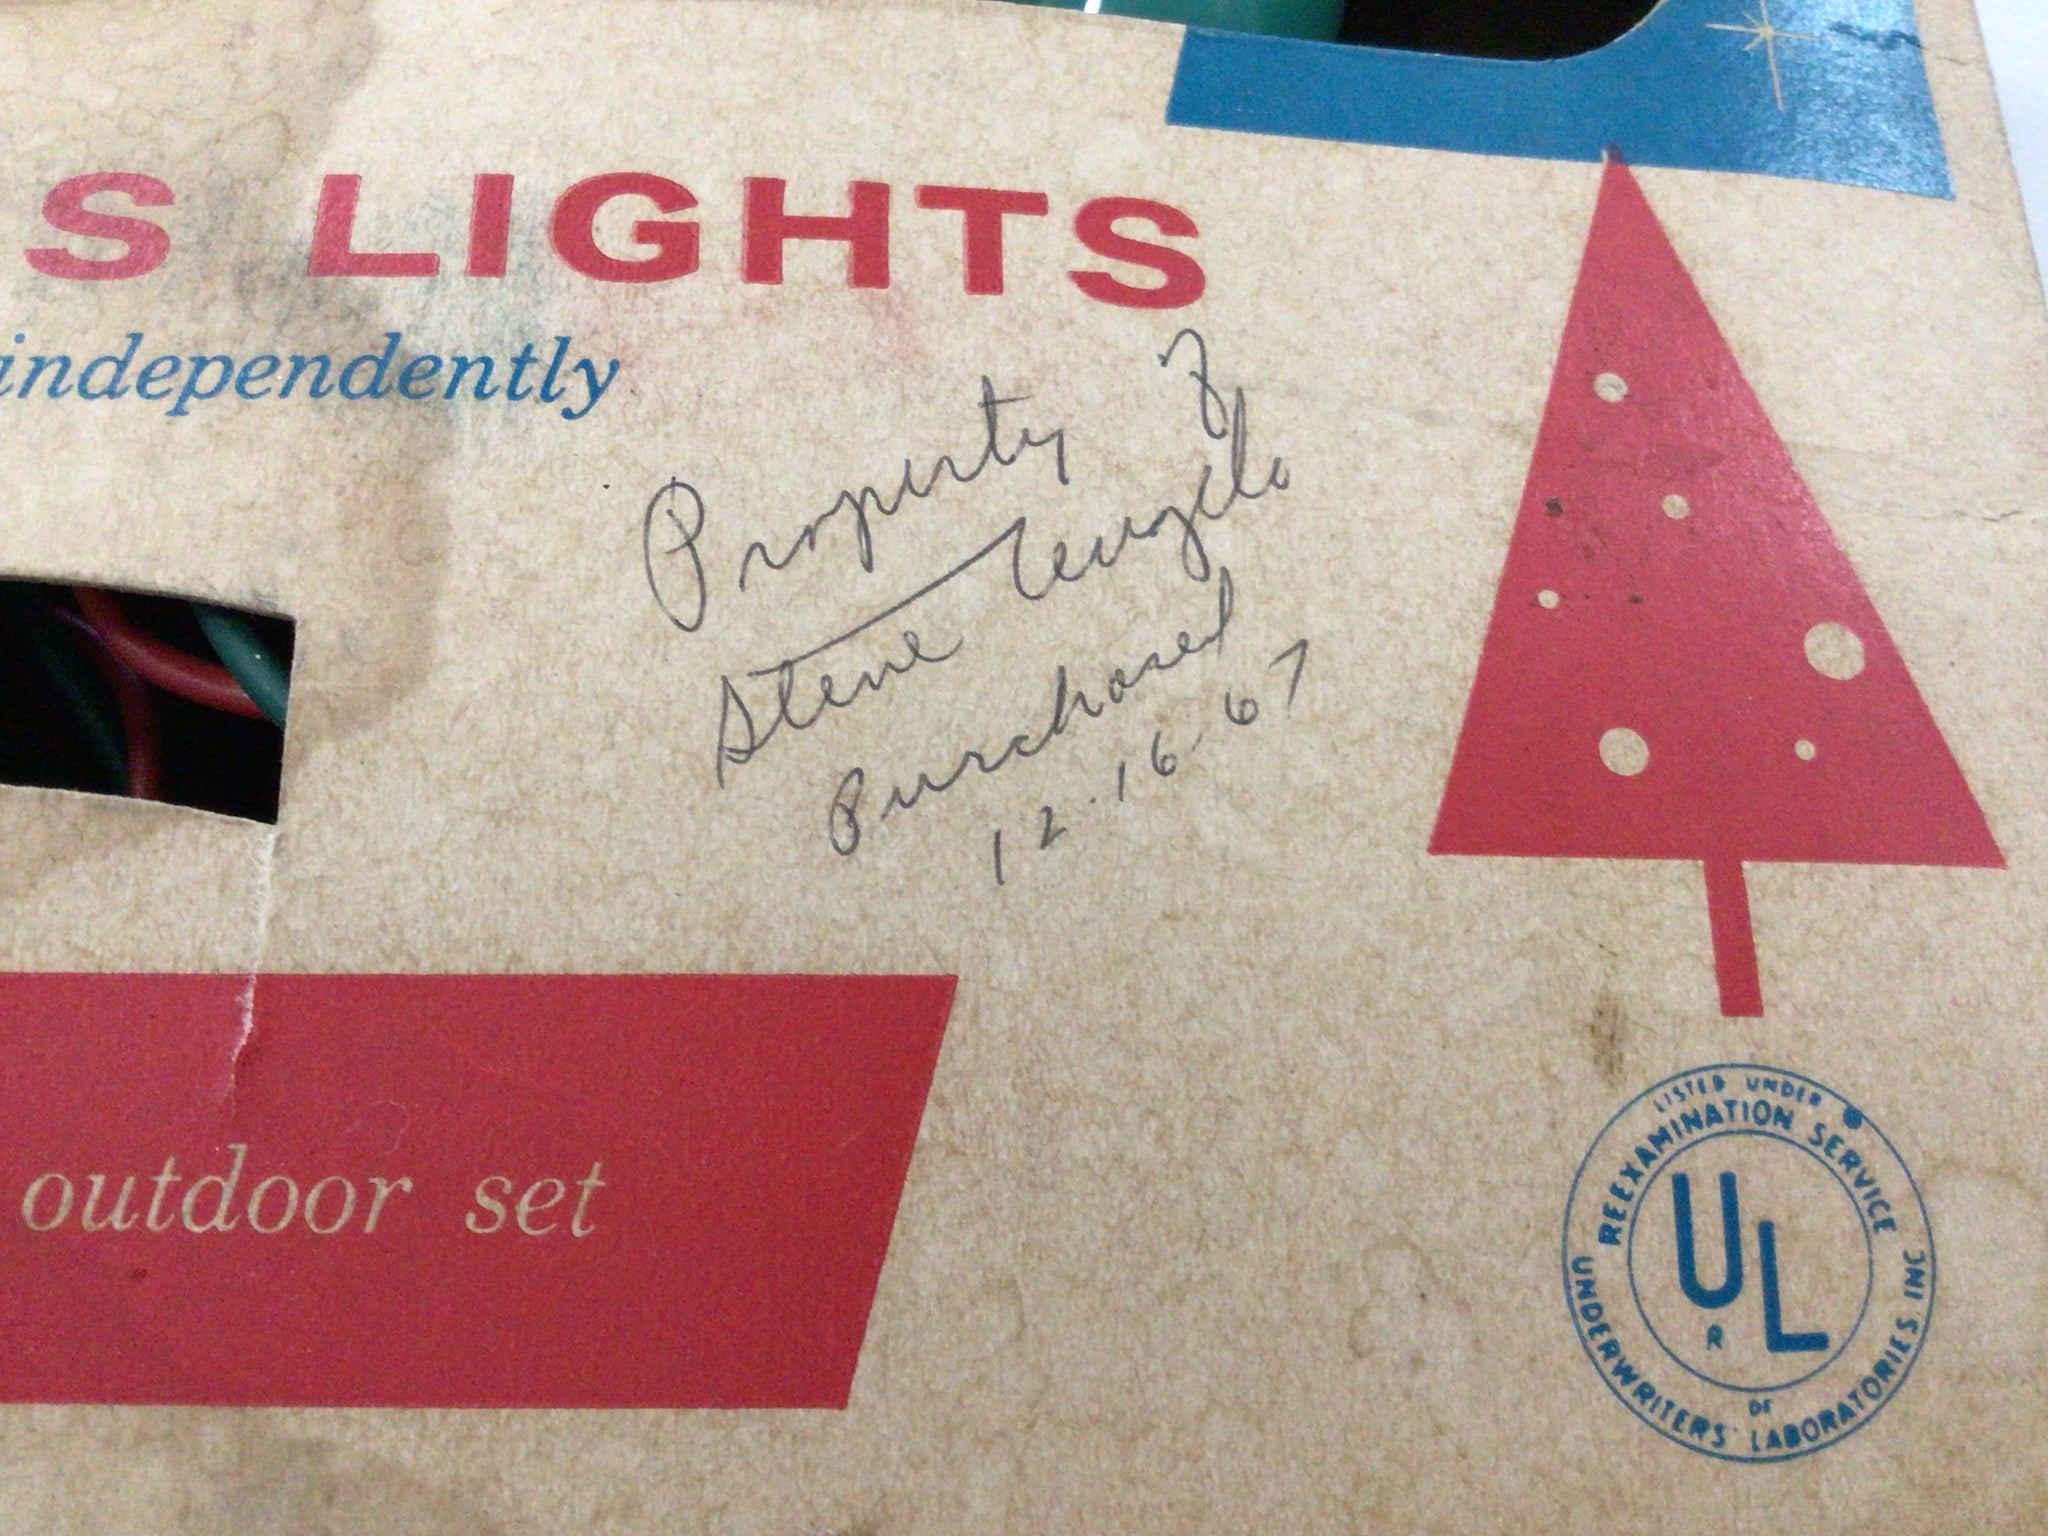 S LIGHTS
independently
Property of
Steve
Purchased
12-16-67
outdoor set
LISTED UNDER
REEXAMINATION SERVICE
UL
R
OF
UNDERWRITERS' LABORATORIES INC